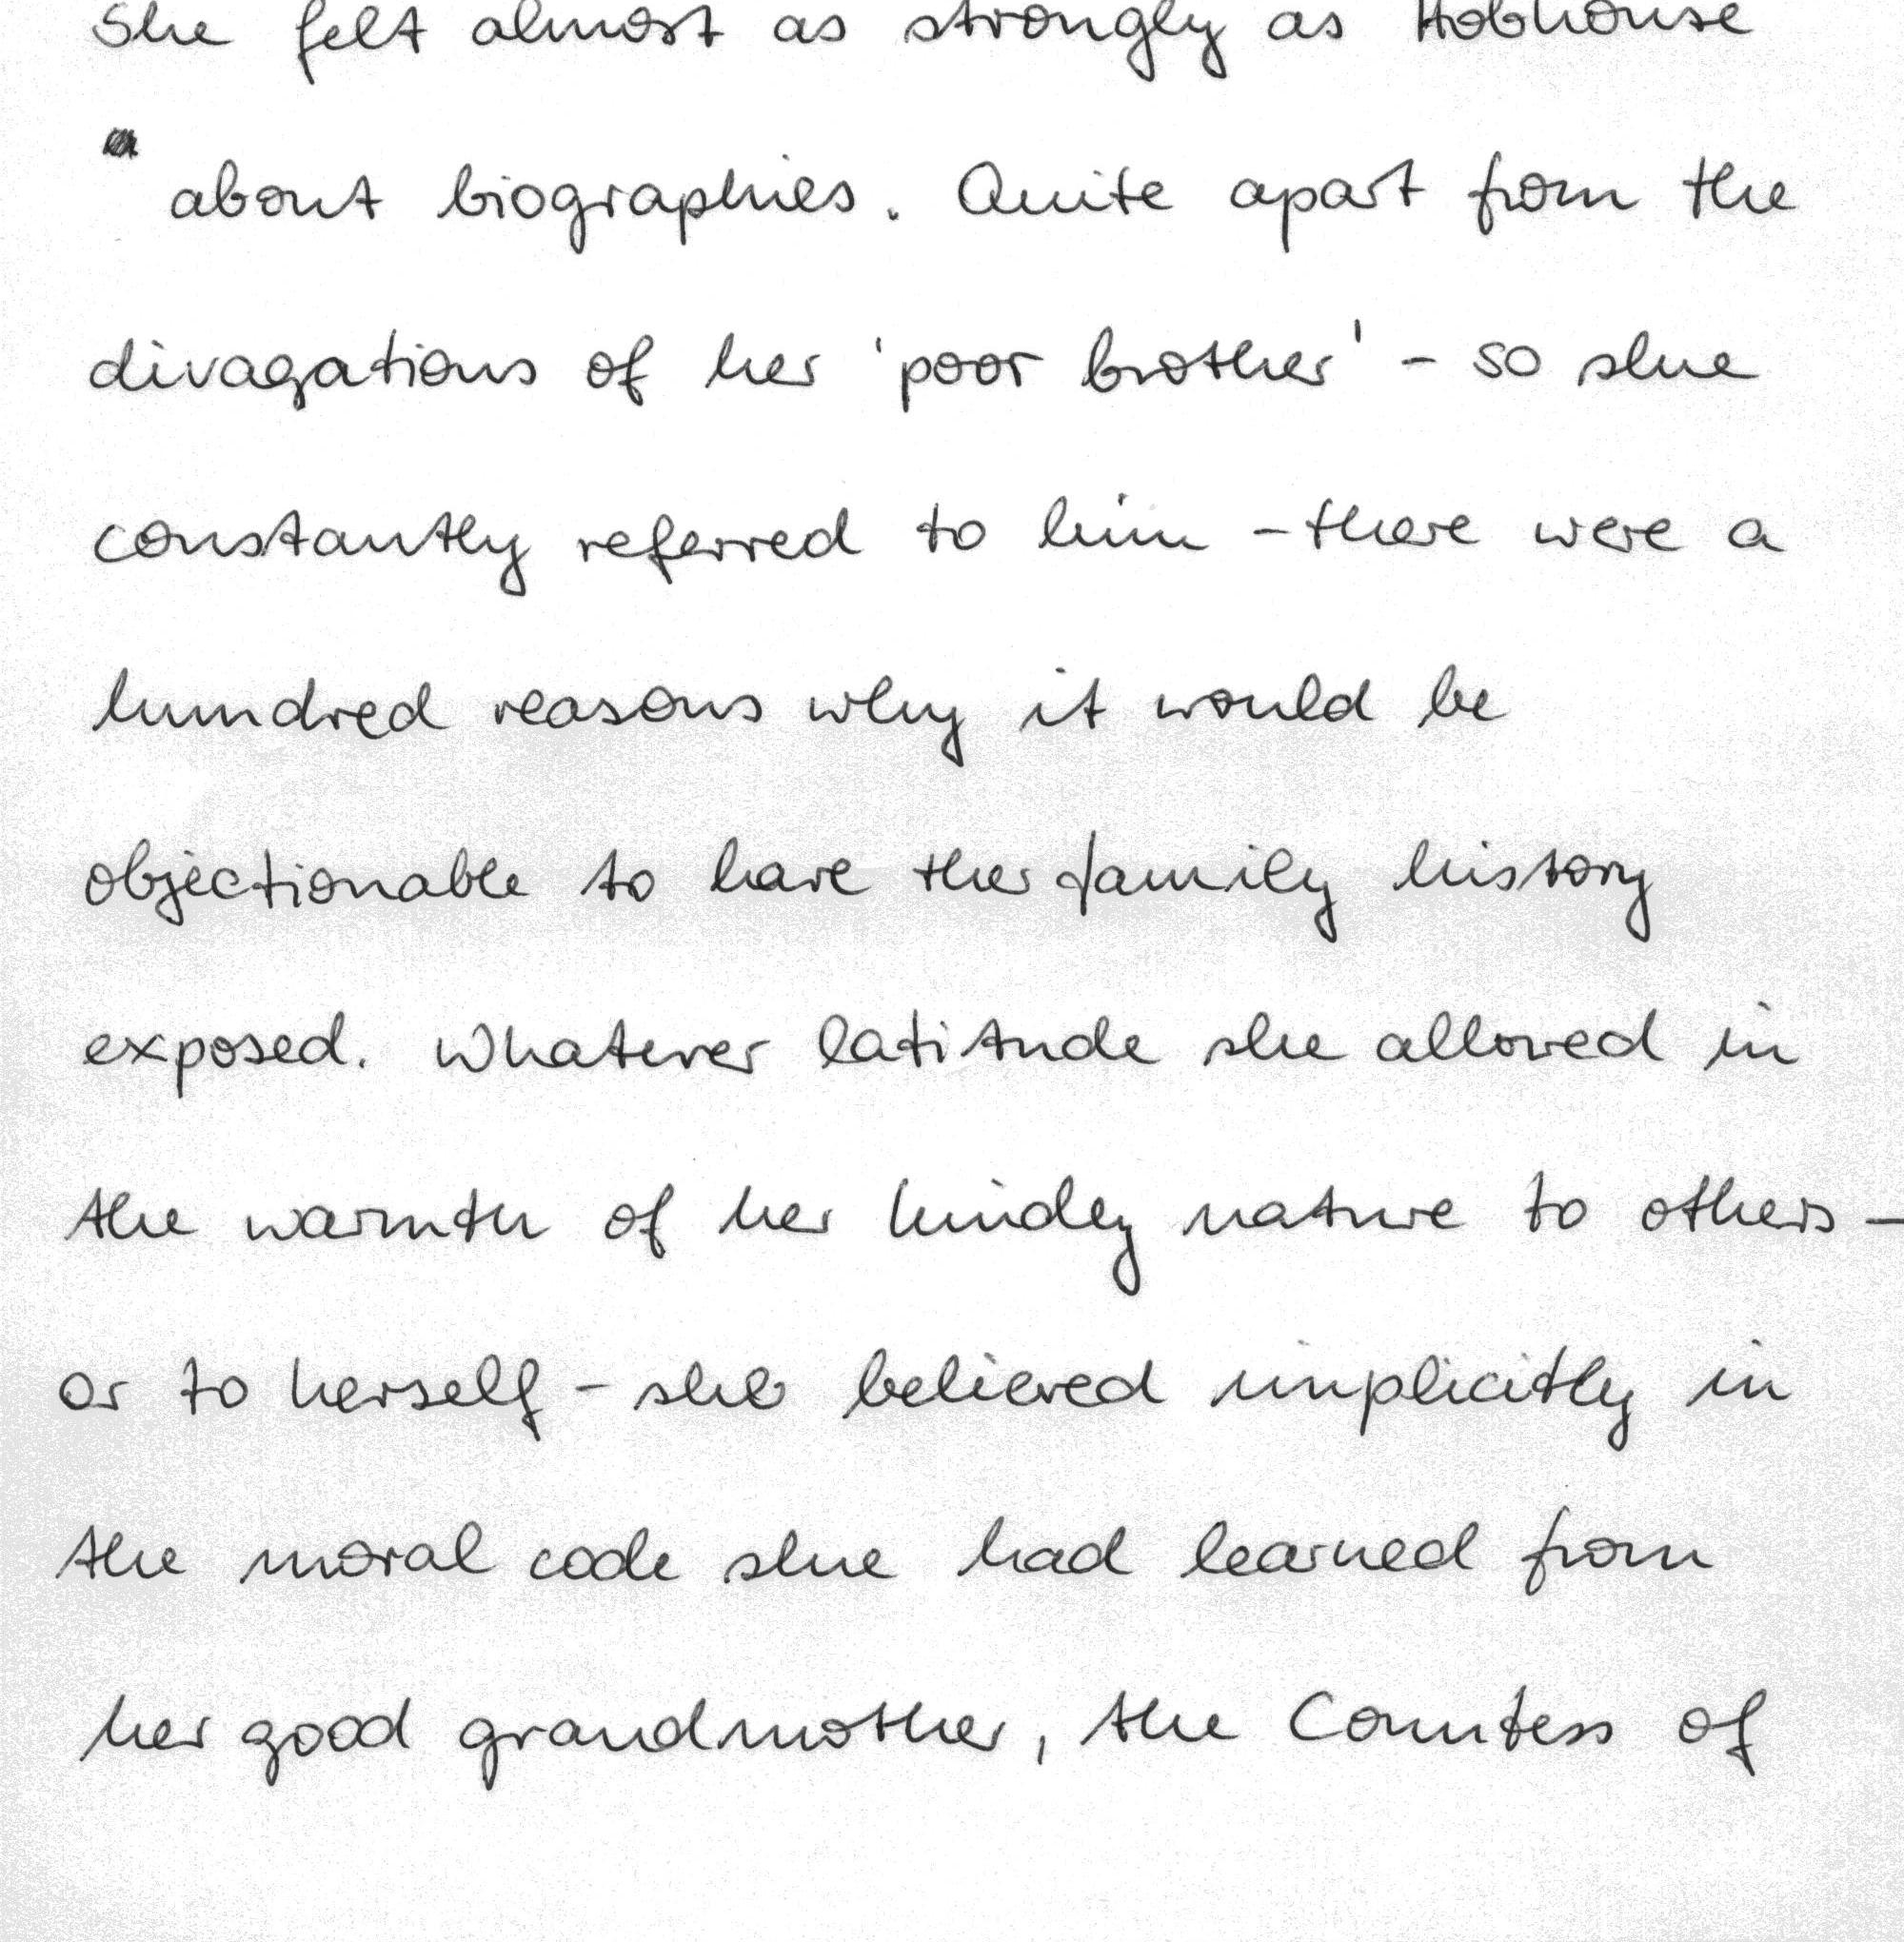 She felt almost as strongly as Hobhouse
about biographies. Quite apart from the
divagations of her 'poor brother' - so she
constantly referred to him - there were a
hundred reasons why it would be
objectionable to have the family history
exposed. Whatever latitude she allowed in
the warmth of her kindly nature to others -
or to herself - she believed implicitly in
the moral code she had learned from
her good grandmother, the Countess of